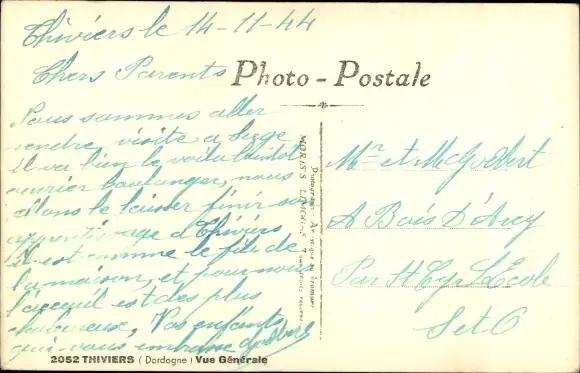 Thiviers le 14-11-44
Chers Parents
Photo-Postale
Nous sommes aller
rendre, visite a Serge
il va bien le voila bientôt
ouvrier boulanger, nous
allons le laisser finir son
apprentissage a Thiviers
Il est comme le fils de
la maison, et pour nous
l'acceuil est des plus
chaleureux, Vos enfants
qui vous embrasse
Mr et Me Golbert
A Bois d'Arcy
Par St Cyr L'Ecole
S et O
2052 THIVIERS (Dordogne) Vue Générale